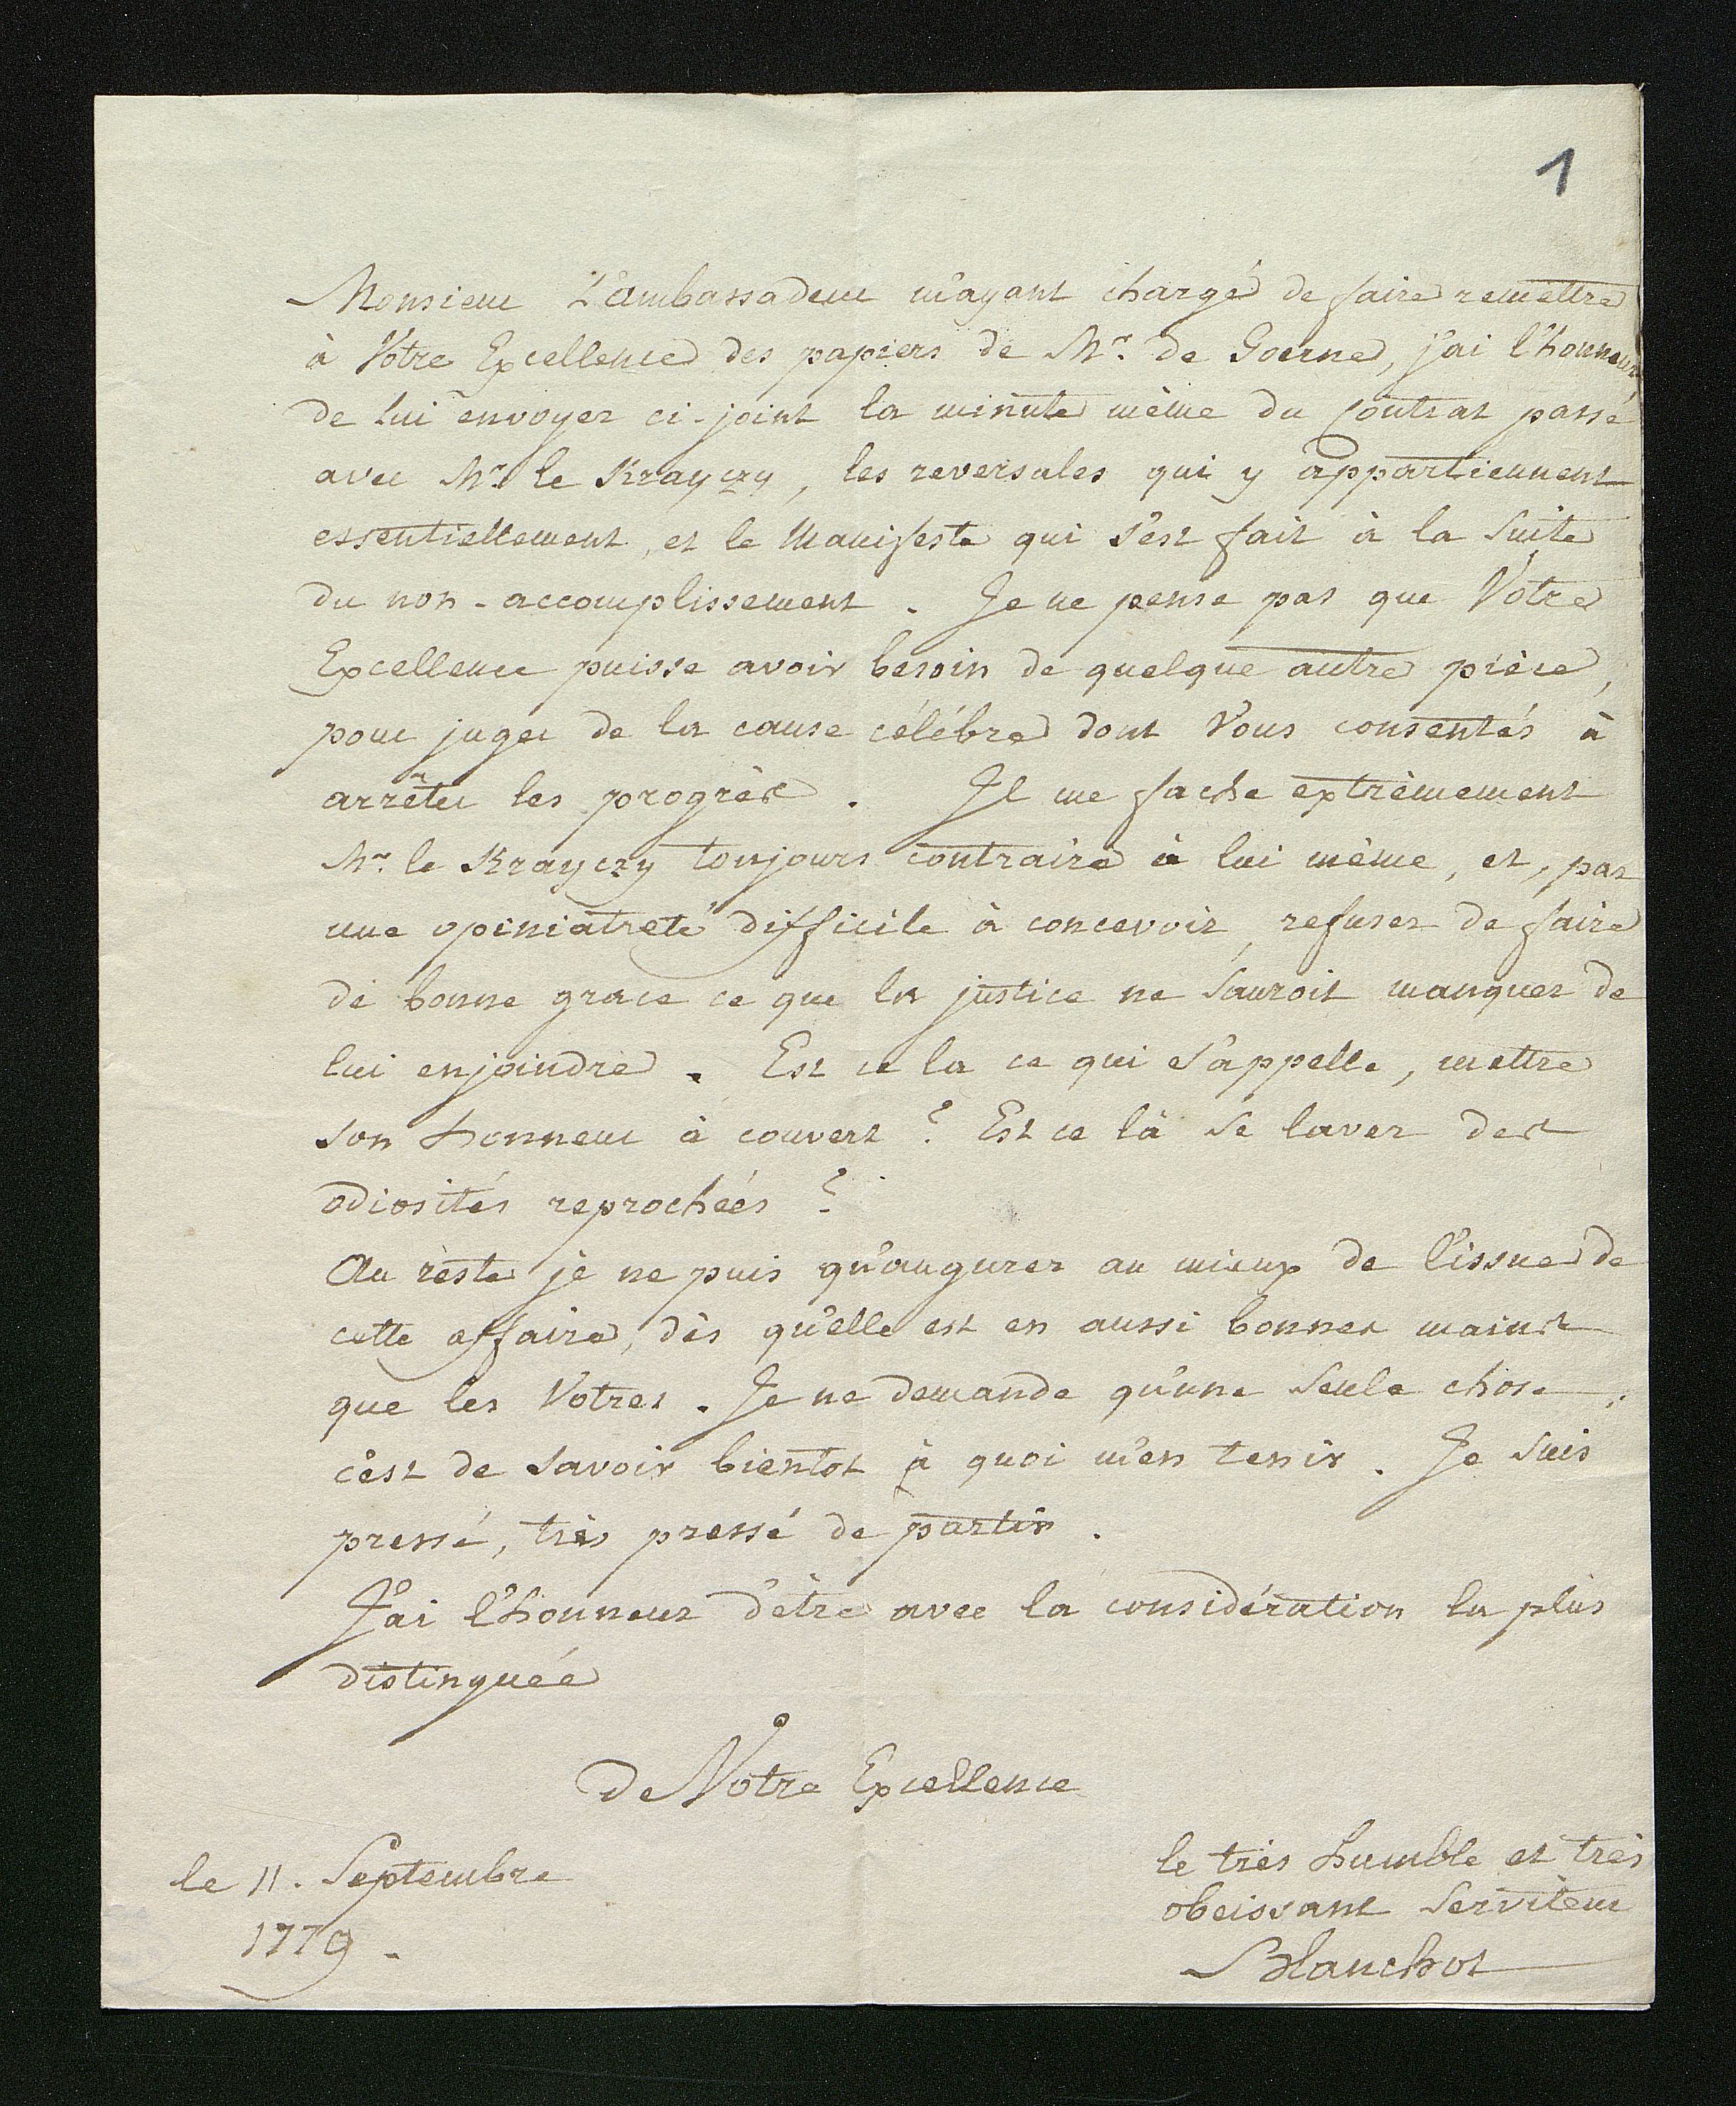 1
Monsieur L'ambassadeur m'ayant chargé de faire remettre
à Votre Excellence des papiers de Mr. de Goerne, j'ai l'honneur
de lui envoyer ci-joint la minute même du Contrat passé
avec Mr. le Krayczy, les reversales qui y appartiennent
essentiellement, et le Manifeste qui s'est fait à la Suite
du non-accomplissement. Je ne pense pas que Votre
Excellence puisse avoir besoin de quelque autre pièce,
pour juger de la cause célébre dont Vous consentés à
arrêter les progrès. Il me fache extrèmement
Mr. le Krayczy toujours contraire à lui même, et, par
une opiniatreté difficile à concevoir, refuser de faire
de bonne grace ce que la justice ne Sauroit manquer de
lui enjoindre. Est ce la ce qui s'appelle, mettre
son honneur à couvert? Est ce là Se laver des
odiosités reprochées?
Au reste je ne puis qu'augurer au mieux de l'issue de
cette affaire, dès qu'elle est en aussi bonnes mains
que les Votres. Je ne demande qu'une Seule chose;
c'est de Savoir bientot à quoi m'en tenir. Je Suis
pressé, très pressé de partir.
J'ai l'honneur d'être avec la considération la plus
distinguée
de Votre Excellence
le très humble et très
obeissant Serviteur
Blanchot
le 11. Septembre
1779.